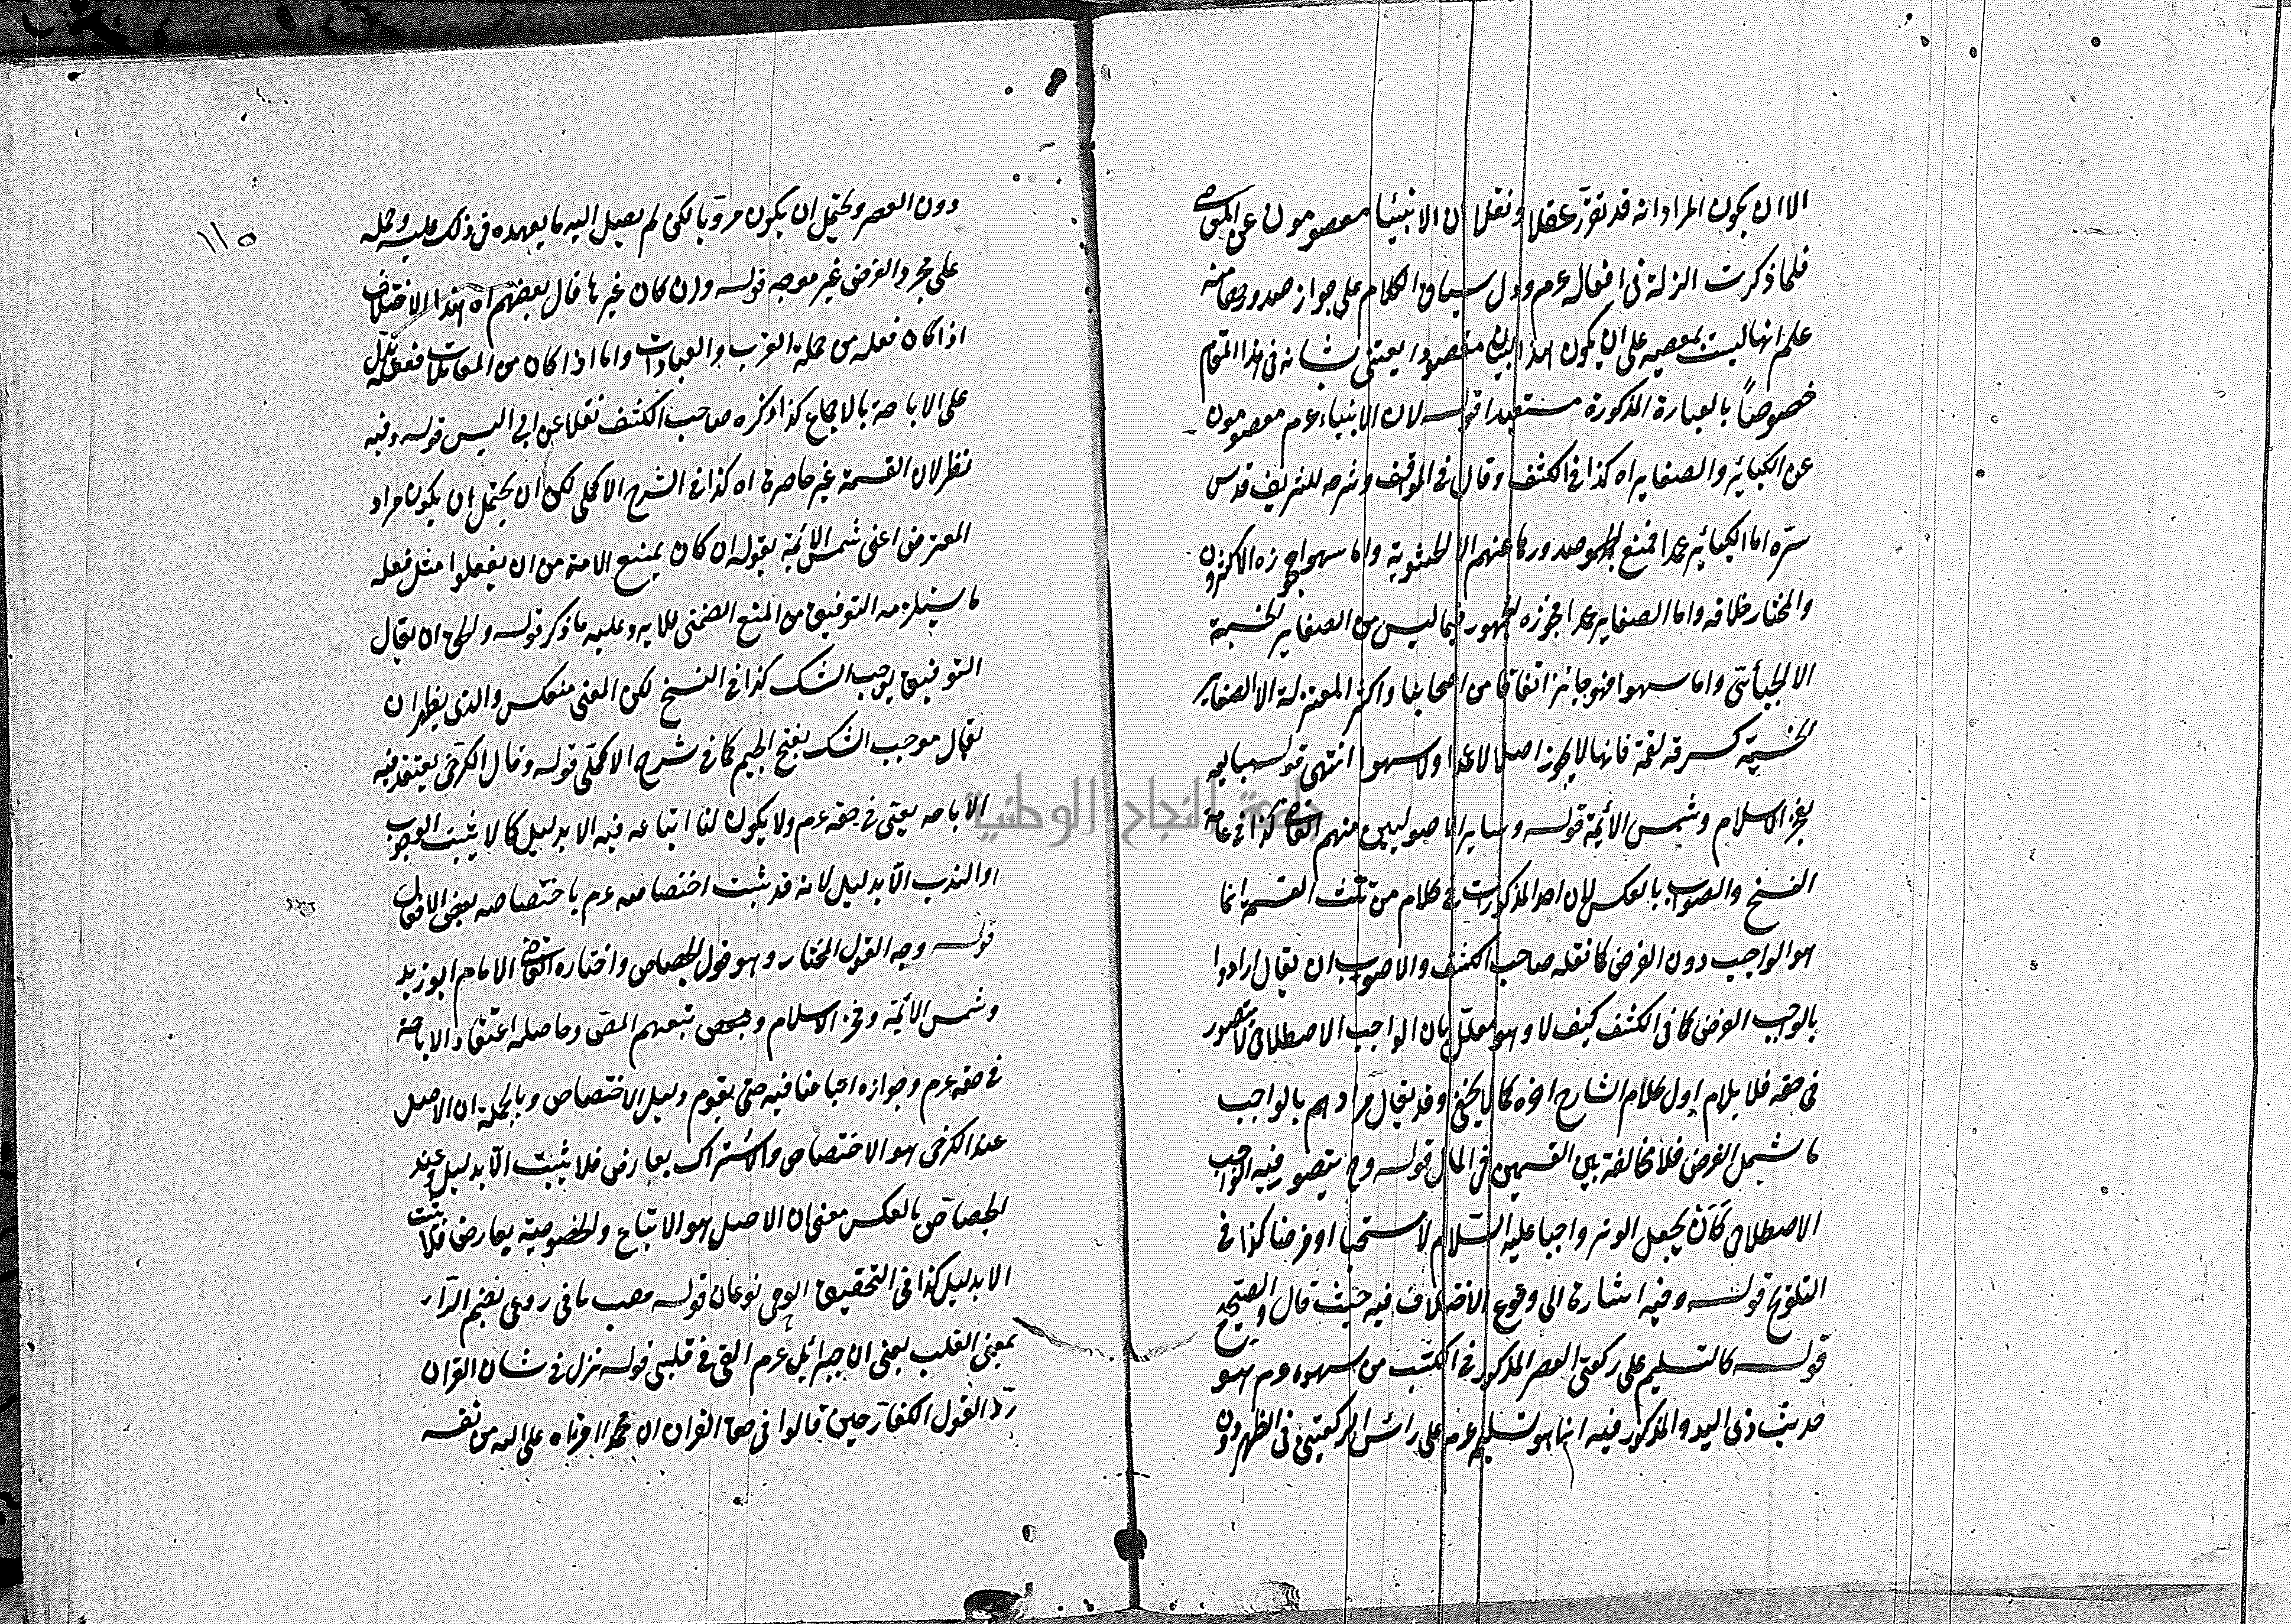 الا ان يكون المراد انه قد تقرر عقلا ونقلا ان الانبيئا معصومون عن المعاصي
فلما ذكرت الزلة في افعاله عم ودل سياق الكلام على جواز صدورها منه
علم انها ليست بمعصيه على ان يكون هذا البيان مقصودا يعتنى بشانه في هذا المقام
خصوصاً بالعبارة المذكورة مستبعد قوله لان الانبياء عم معصومون
عن الكبائر والصغاير اه كذا في الكشف وقال في المواقف وشرحه للشريف قدس
سره اما الكبائر عمدا فمنع الجمهور صدورها عنهم الا الحشوية واما سهوا فجوزه الاكثرون
والمختار خلافه واما الصغاير عمدا فجوزه الجمهور فيما ليس من الصغاير الخسية
الا الجبأئى واما سهوا فهو جائز اتفاقا من اصحابنا واكثر المعتزلة الا الصغاير
الخسيّة كسرقة لقمة فانها لا يجوز اصلا لا عمدا ولا سهوا انتهى قوله
فخر الاسلام وشمس الأئمة قوله وساير الاصوليين منهم القاضي كذا في عامة
النسخ والصواب بالعكس لان احد المذكورات في كلام من ثلث القسم انما
هو الواجب دون الفرض كما نقله صاحب الكشف والاصوب ان يقال ارادوا
بالواجب الفرض كما في الكشف كيف لا وهو معلل بان الواجب الاصطلاحى لا يتصور
في حقه فلا يلام اول كلام الشارح اخره كما لا يخفى وقد يقال مرادهم بالواجب
ما يشمل الفرض فلا مخالفة بين القسمين في المال قوله وح يتصور فيه الواجب
الاصطلاحى كان يجعل الوتر واجبا عليه السّلام لا مستحبا او فرضا كذا في
التلويح قوله وفيه اشارة الى وقوع الاختلاف فيه حيث قال والصحيح
قوله كالتسليم على ركعتى العصر المذكور في الكتب من سهوه عم هو
حديث ذى اليد والمذكور فيه انما هو تسليمه عم على رأس الركعتين في الظهر دون
١١٥
دون العصر ويحتمل ان يكون مرويا لكن لم يصل اليه ما يعهده في ذلك عليه وحمله
على مجرد الفرض غير موجه قوله وان كان غيرها قال بعضهم اه هذا الاختلاف
اذا كان فعله من جملة القرب والعبادات واما اذا كان من المعاملات ففعله يدل
على الاباحة بالاجماع كذا ذكره صاحب الكشف نقلا عن ابي اليسر قوله وفيه
نظر لان القسمة غير حاصرة اه كذا في الشرح الاكملى لكن ان يحتمل ان يكون مراد
المعترض اعنى شمس الائمة بقوله ان كان يمنع الامة من ان يفعلوا مثل فعله
ما يستلزمه التوقيف من المنع الضمنى فلا يرد عليه ما ذكر قوله والحق ان يقال
التوقيف يوجب الشك كذا في النسخ لكن المعنى منعكس والذى يظهر ان
يقال موجب الشك بفتح الجيم كما في شرح الاكملى قوله وقال الكرخى يعتقد فيه
الاباحه يعنى في حقه عم ولا يكون لنا اتباعه فيه الا بدليل كما لا يثبت الوجوب
او الندب الّا بدليل لانه قد ثبت اختصاصه عم باختصاصه ببعض الافعال
قوله وجه القول المختار وهو قول الجصاص واختاره القاضي الامام ابو زيد
وشمس الأئمة وفخر الاسلام وبعض تبعهم المص وحاصله اعتقاد الاباحة
في حقه عم وجواز اتباعنا فيه حتى يقوم دليل الاختصاص وبالجملة ان الاصل
عند الكرخى هو الاختصاص والاشتراك بعارض فلا يثبت الّا بدليل وعند
الجصاص بالعكس معنى ان الاصل هو الاتباع والخصوصية بعارض فلا يثبت
الا بدليل كذا في التحقيق الوحى نوعان قوله ما في روعى بضم الرّاء
بمعنى القلب يعنى ان جبرائيل عم القى في قلبى قوله نزل في شان القران
ردّ القول الكفار حين قالوا في حق القران ان محمدا افتراه على الله من نفسه
جامعة النجاح الوطنية